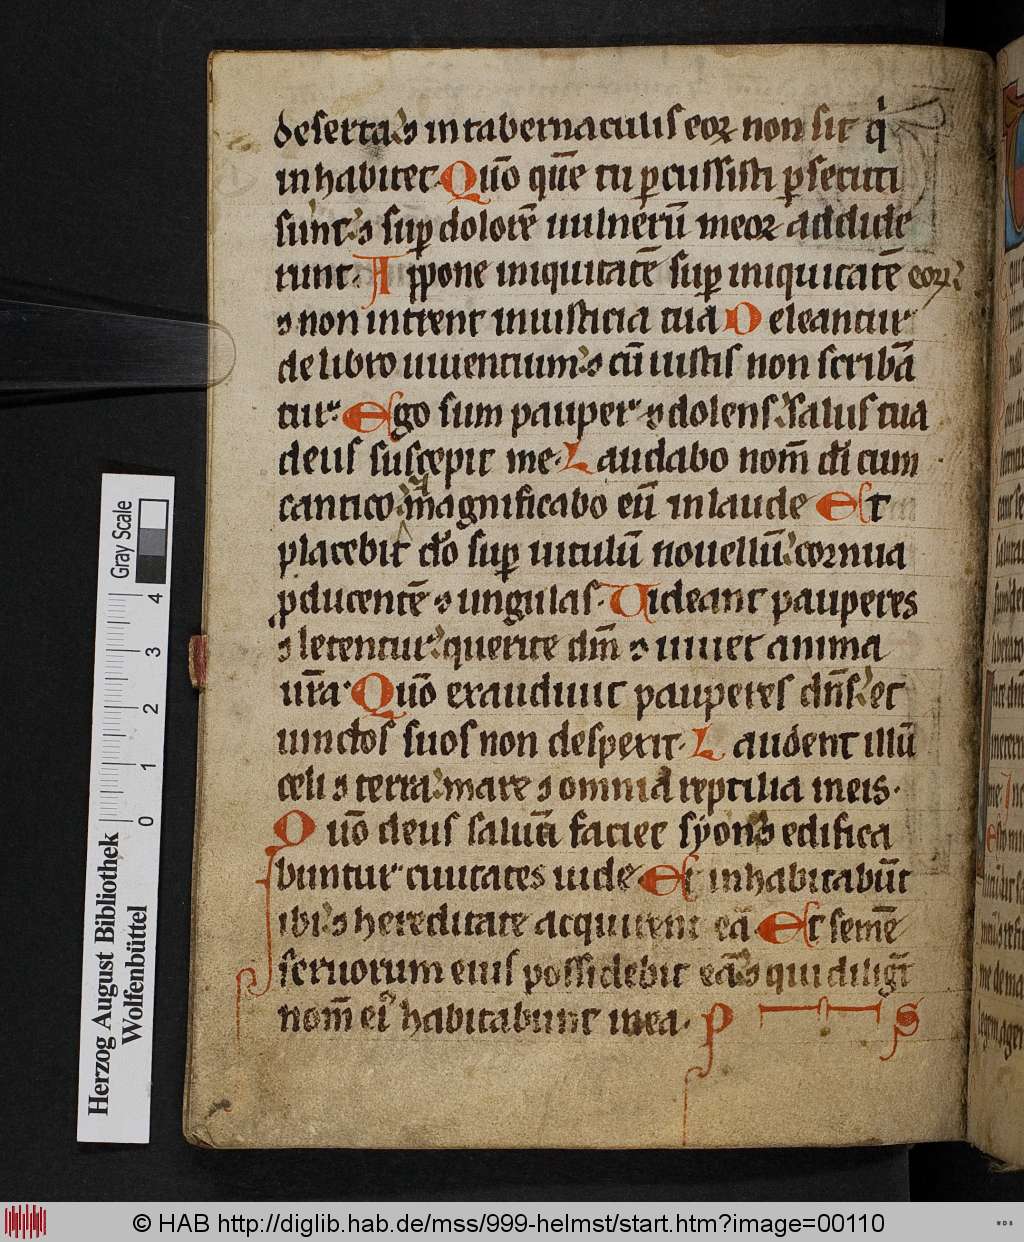 deserta ⁊ in tabernaculis eoꝝ non sit q̇
inhabitet. Quō quē tu ꝑcussisti ꝑsecuti
sunt ⁊ suꝑ dolorē uulnerū meoꝝ addide
runt. Appone iniquitatē suꝑ iniquitatē eoꝝ
⁊ non intrent in iusticia tua Deleantur
de libro uiuentium ⁊ cū iustis non scribā
tur. Ego sum pauper ⁊ dolens salus tua
deus suscepit me. Laudabo nom̄ dī cum
cantico ⁊ magnificabo eū in laude Et
placebit dō suꝑ uitulū nouellū cornua
ꝓducentē ⁊ ungulas. Uideant pauperes
⁊ letentur querite dm̄ ⁊ uiuet anima
ur̄a. Quō exaudiuit pauperes dn̄s et
uinctos suos non despexit. Laudent illū
celi ⁊ terra mare ⁊ omnia reptilia in eis.
Quō deus saluā faciet syon ⁊ edifica
buntur ciuitates iude Et inhabitabūt
ibi ⁊ hereditate acquirent eā Et semē
seruorum eius possidebit eā ⁊ qui diligt̄
nom̄ eiꝰ habitabunt in ea. P S
Herzog August Bibliothek
Wolfenbüttel
0 1 2 3 4
Gray Scale
© HAB http://diglib.hab.de/mss/999-helmst/start.htm?image=00110